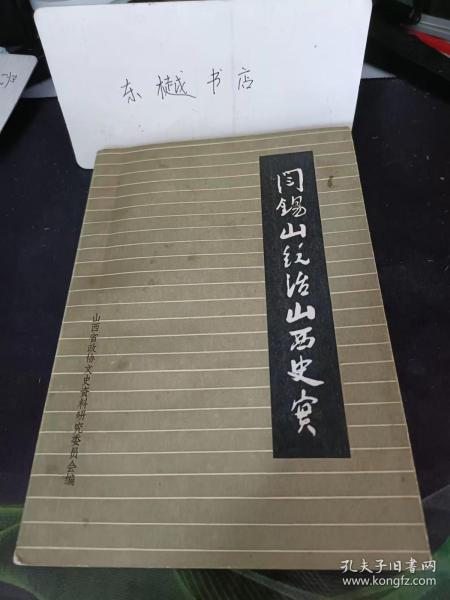 东樾书店
闫锡山统治山西史实
山西省政协文史资料研究委员会编
孔夫子旧书网
www.kongfz.com